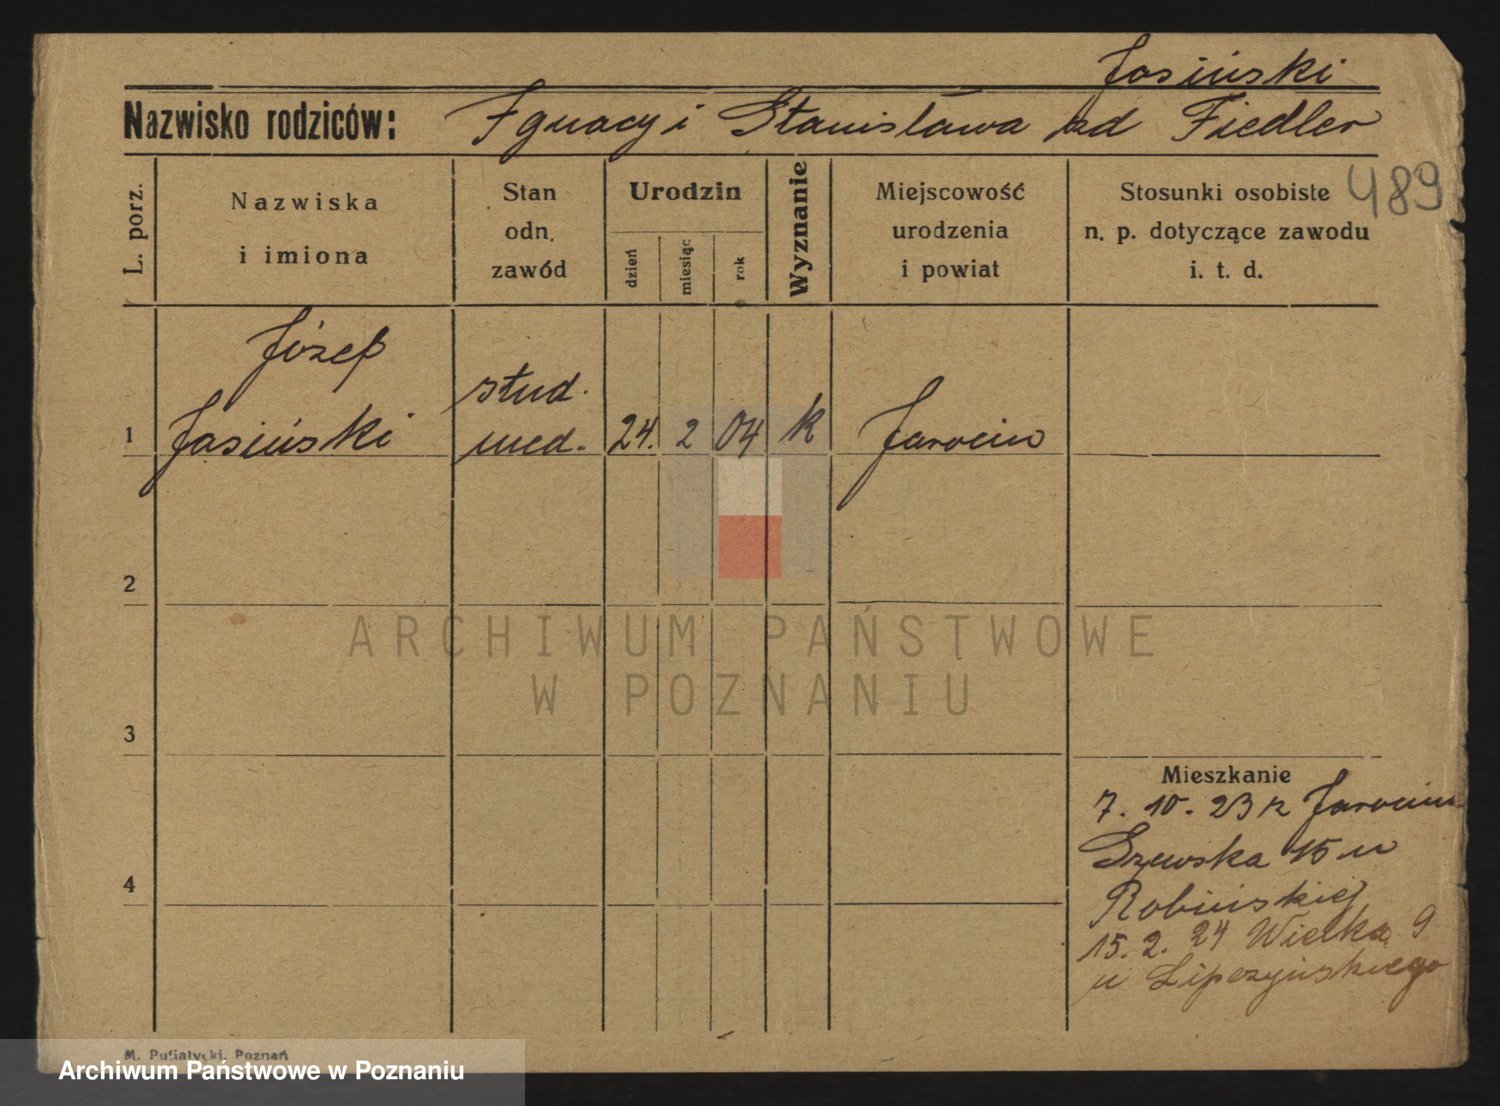 Jasiński
Nazwisko rodziców: Ignacy i Stanisława zd Fiedler
489
L. porz.
Nazwiska
i imiona
Stan
odn.
zawód
Urodzin
dzień
miesiąc
rok
Wyznanie
Miejscowość
urodzenia
i powiat
Stosunki osobiste
n. p. dotyczące zawodu
i. t. d.
Józef
1 Jasiński
stud.
med.
24. 2 04 k Jarocin
2
ARCHIWUM PAŃSTWOWE
W POZNANIU
3
4
Mieszkanie
7. 10. 23 z Jarocin
Szewska 15 u
Robińskiej
15. 2. 24 Wielka 9
u Lipczyńskiego
M. Putiatycki, Poznań
Archiwum Państwowe w Poznaniu